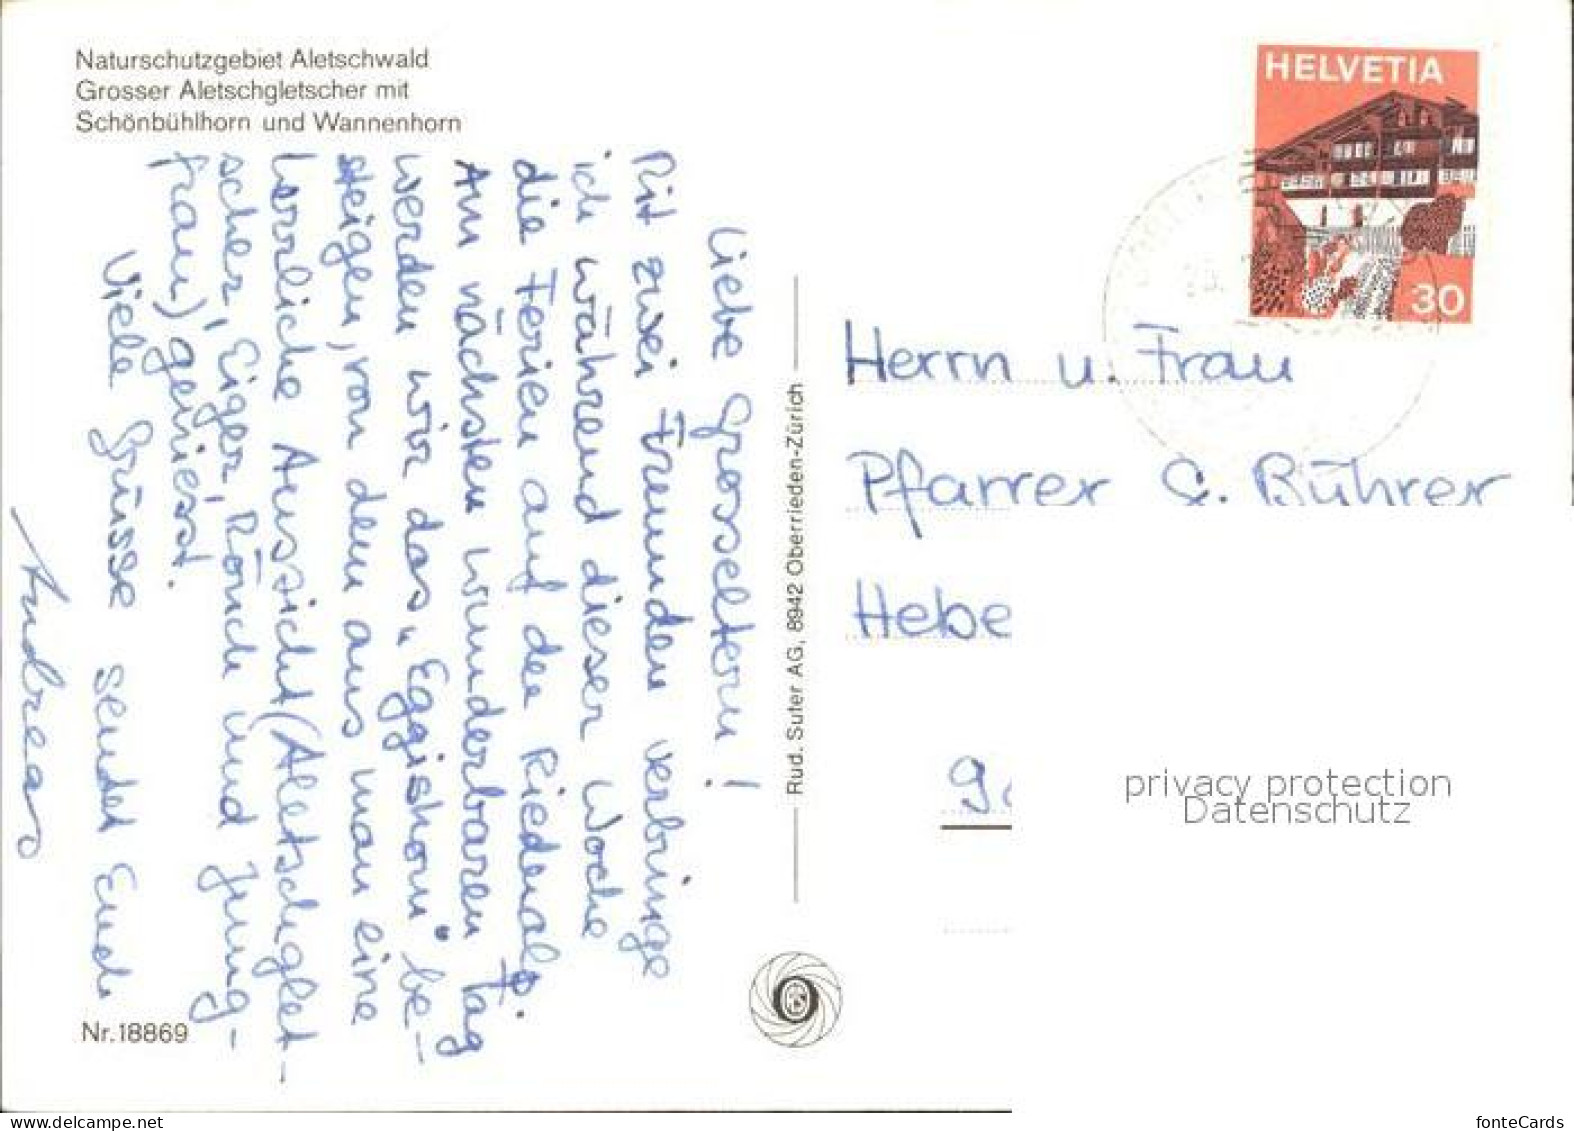 Naturschutzgebiet Aletschwald
Grosser Aletschgletscher mit
Schönbühlhorn und Wannenhorn
Liebe Grosseltern!
Mit zwei Freunden verbringe
ich während dieser Woche
die Ferien auf der Riederalp.
Am nächsten wunderbaren Tag
werden wir das „Eggishorn" be-
steigen, von dem aus man eine
herrliche Aussicht (Aletschglet-
scher, Eiger, Mönch und Jung-
frau) geniesst.
Viele Grüsse sendet Euch
Andreas
Nr.18869
Rud. Suter AG, 8942 Oberrieden-Zürich
HELVETIA
30
Herrn u. Frau
Pfarrer C. Bührer
Hebe
privacy protection
Datenschutz
delcampe.net
fonteCards